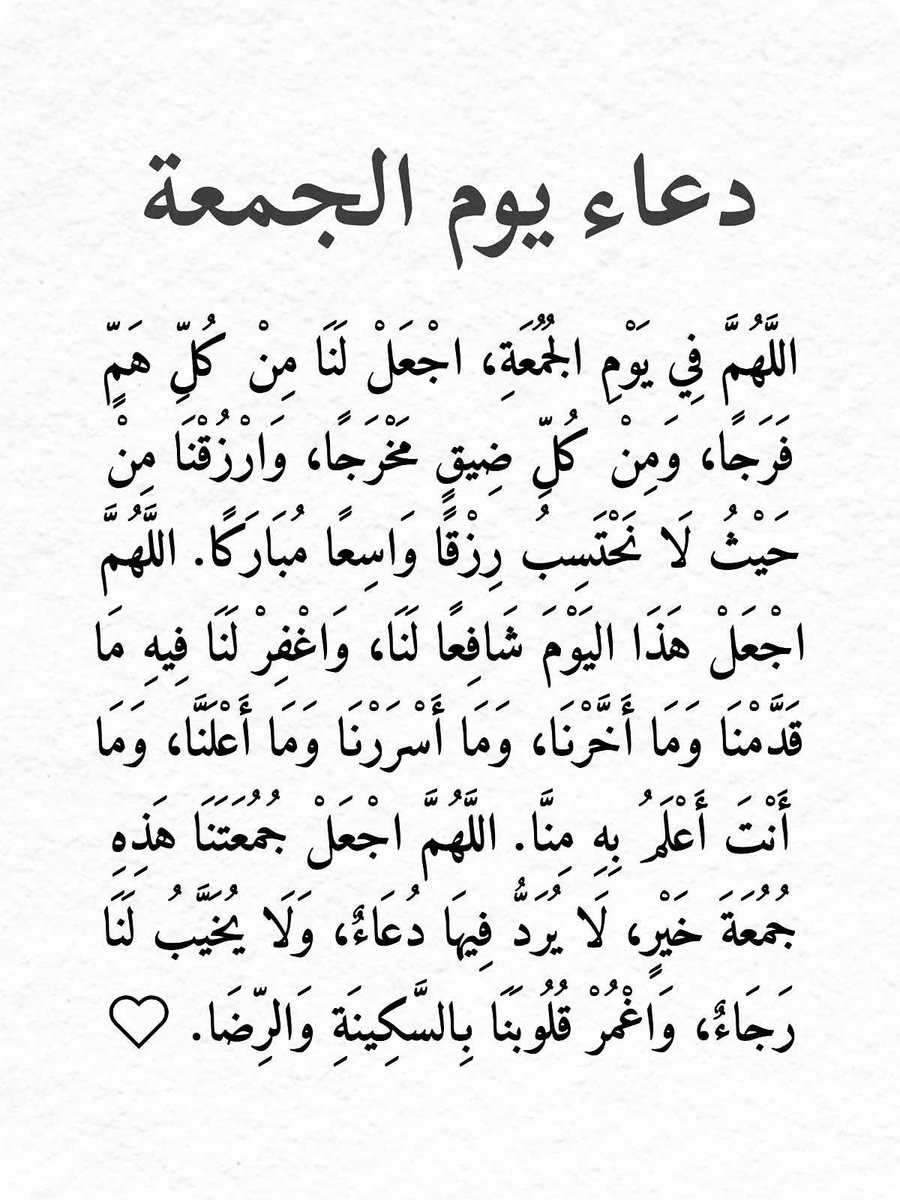 دعاء يوم الجمعة
اللَّهُمَّ فِي يَوْمِ الْجُمُعَةِ، اجْعَلْ لَنَا مِنْ كُلِّ هَمٍّ
فَرَجًا، وَمِنْ كُلِّ ضِيقٍ مَخْرَجًا، وَارْزُقْنَا مِنْ
حَيْثُ لَا نَحْتَسِبُ رِزْقًا وَاسِعًا مُبَارَكًا. اللَّهُمَّ
اجْعَلْ هَذَا اليَوْمَ شَافِعًا لَنَا، وَاغْفِرْ لَنَا فِيهِ مَا
قَدَّمْنَا وَمَا أَخَّرْنَا، وَمَا أَسْرَرْنَا وَمَا أَعْلَنَّا، وَمَا
أَنْتَ أَعْلَمُ بِهِ مِنَّا. اللَّهُمَّ اجْعَلْ جُمُعَتَنَا هَذِهِ
جُمُعَةَ خَيْرٍ، لَا يُرَدُّ فِيهَا دُعَاءٌ، وَلَا يُخَيَّبُ لَنَا
رَجَاءٌ، وَاغْمُرْ قُلُوبَنَا بِالسَّكِينَةِ وَالرِّضَا. ♡